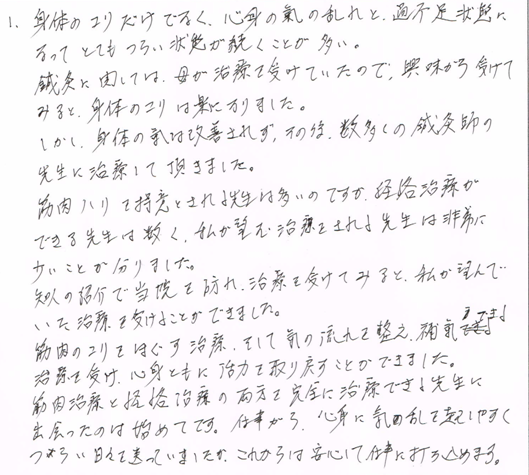 1. 身体のコリだけでなく、心身の氣の乱れと、過不足状態に
なってとてもつらい状態が続くことが多い。
鍼灸に関しては、母が治療を受けていたので、興味から受けて
みると、身体のコリは楽になりました。
しかし、身体の氣は改善されず、その後、数多くの鍼灸師の
先生に治療して頂きました。
筋肉ハリを得意とされる先生は多いのですが、経絡治療が
できる先生は数く、私が望む治療をされる先生は非常に
少いことが分りました。
知人の紹介で当院を訪れ、治療を受けてみると、私が望んで
いた治療を受けることができました。
筋肉のコリをほぐす治療、そして気の流れを整え、補氣できる
治療を受け、心身ともに活力を取り戻すことができました。
筋肉治療と経絡治療の両方を完全に治療できる先生に
出会ったのは始めてです。仕事がら、心身に氣の乱しを起しやすく
つらい日々を送っていましたが、これからは安心して仕事に打ち込めます。